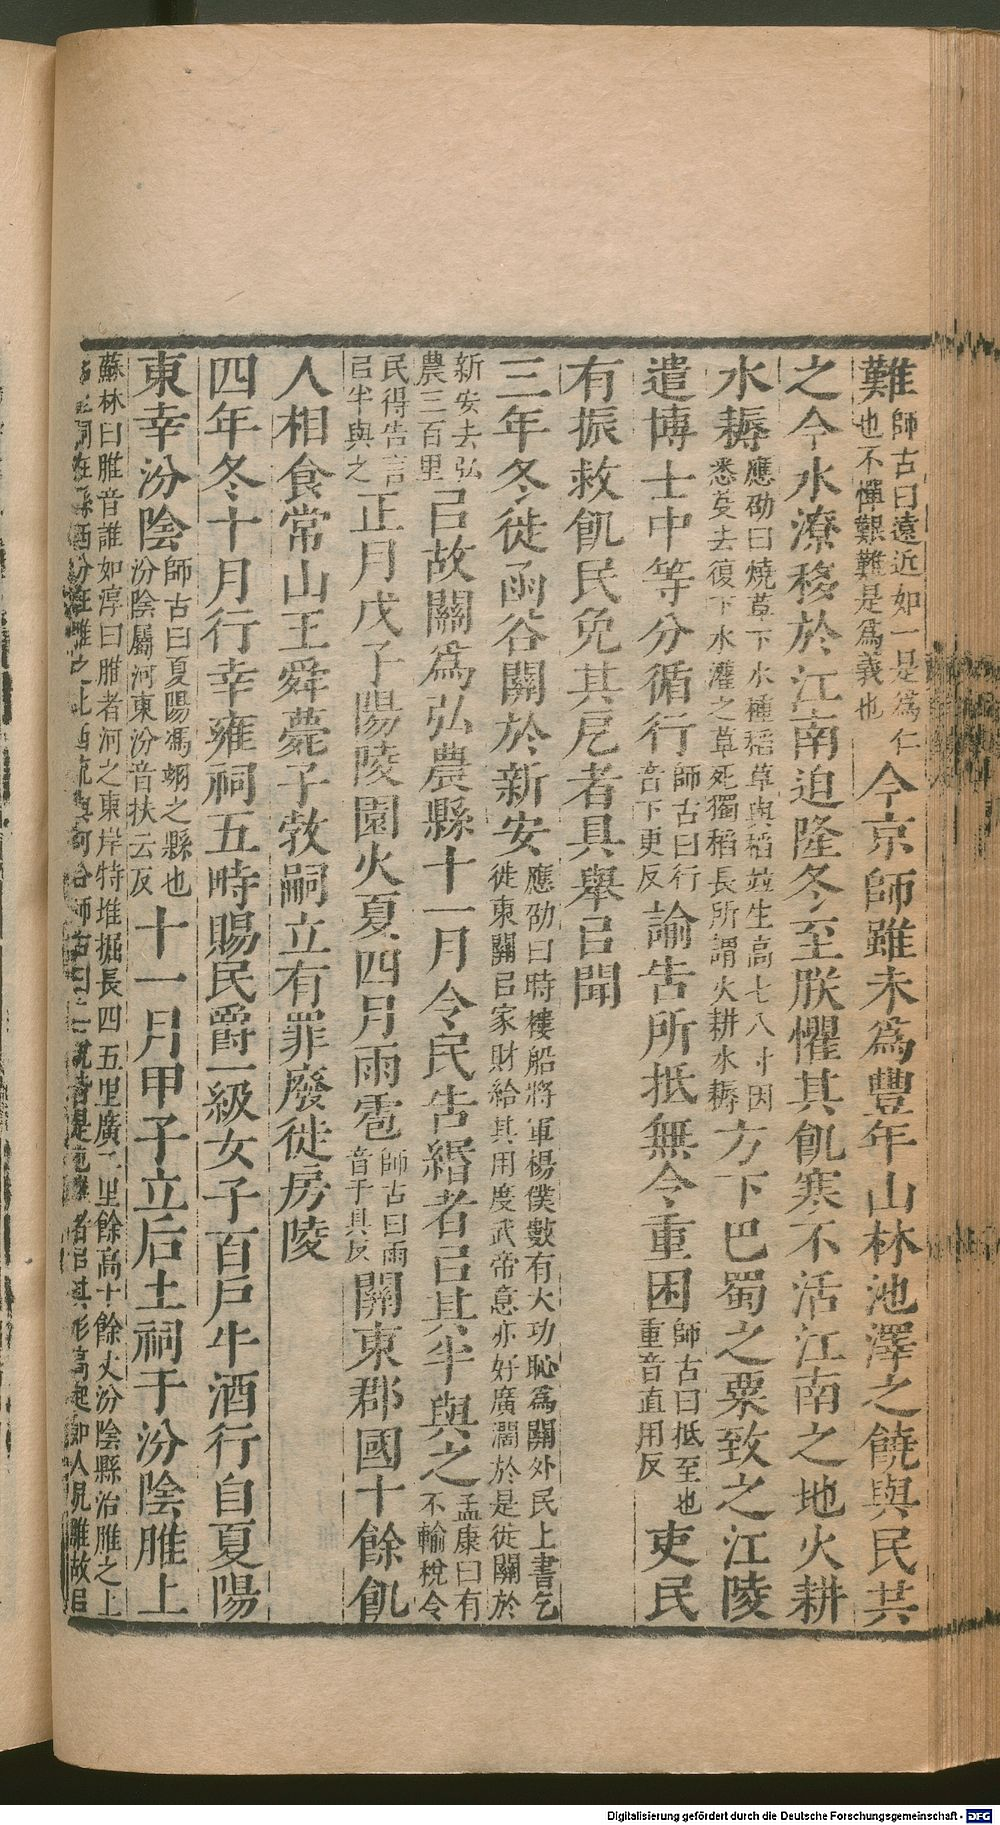 難師古曰遠近如一是爲仁也不憚艱難是爲義也今京師雖未爲豐年山林池澤之饒與民共
之今水潦移於江南迫隆冬至朕懼其飢寒不活江南之地火耕
水耨應劭曰燒草下水種稻草與稻並生高七八寸因悉芟去復下水灌之草死獨稻長所謂火耕水耨方下巴蜀之粟致之江陵
遣博士中等分循行師古曰行音下更反諭告所抵無令重困師古曰抵至也重音直用反吏民
有振救飢民免其戹者具舉㠯聞
三年冬徙函谷關於新安應劭曰時樓船將軍楊僕數有大功恥爲關外民上書乞徙東關㠯家財給其用度武帝意亦好廣濶於是徙關於
新安去弘農三百里㠯故關爲弘農縣十一月令民告緡者㠯其半與之孟康曰有不輸稅令
民得告言㠯半與之正月戊子陽陵園火夏四月雨雹師古曰雨音于具反關東郡國十餘飢
人相食常山王舜薨子敎嗣立有罪廢徙房陵
四年冬十月行幸雍祠五畤賜民爵一級女子百戶牛酒行自夏陽
東幸汾陰師古曰夏陽馮翊之縣也汾陰屬河東汾音扶云反十一月甲子立后土祠于汾陰脽上
蘇林曰脽音誰如淳曰脽者河之東岸特堆掘長四五里廣二里餘高十餘丈汾陰縣治脽之上
在縣西汾在脽之北西流與河合師古曰二說皆是也 者㠯其形高起如人尻脽故㠯
Digitalisierung gefördert durch die Deutsche Forschungsgemeinschaft - DFG